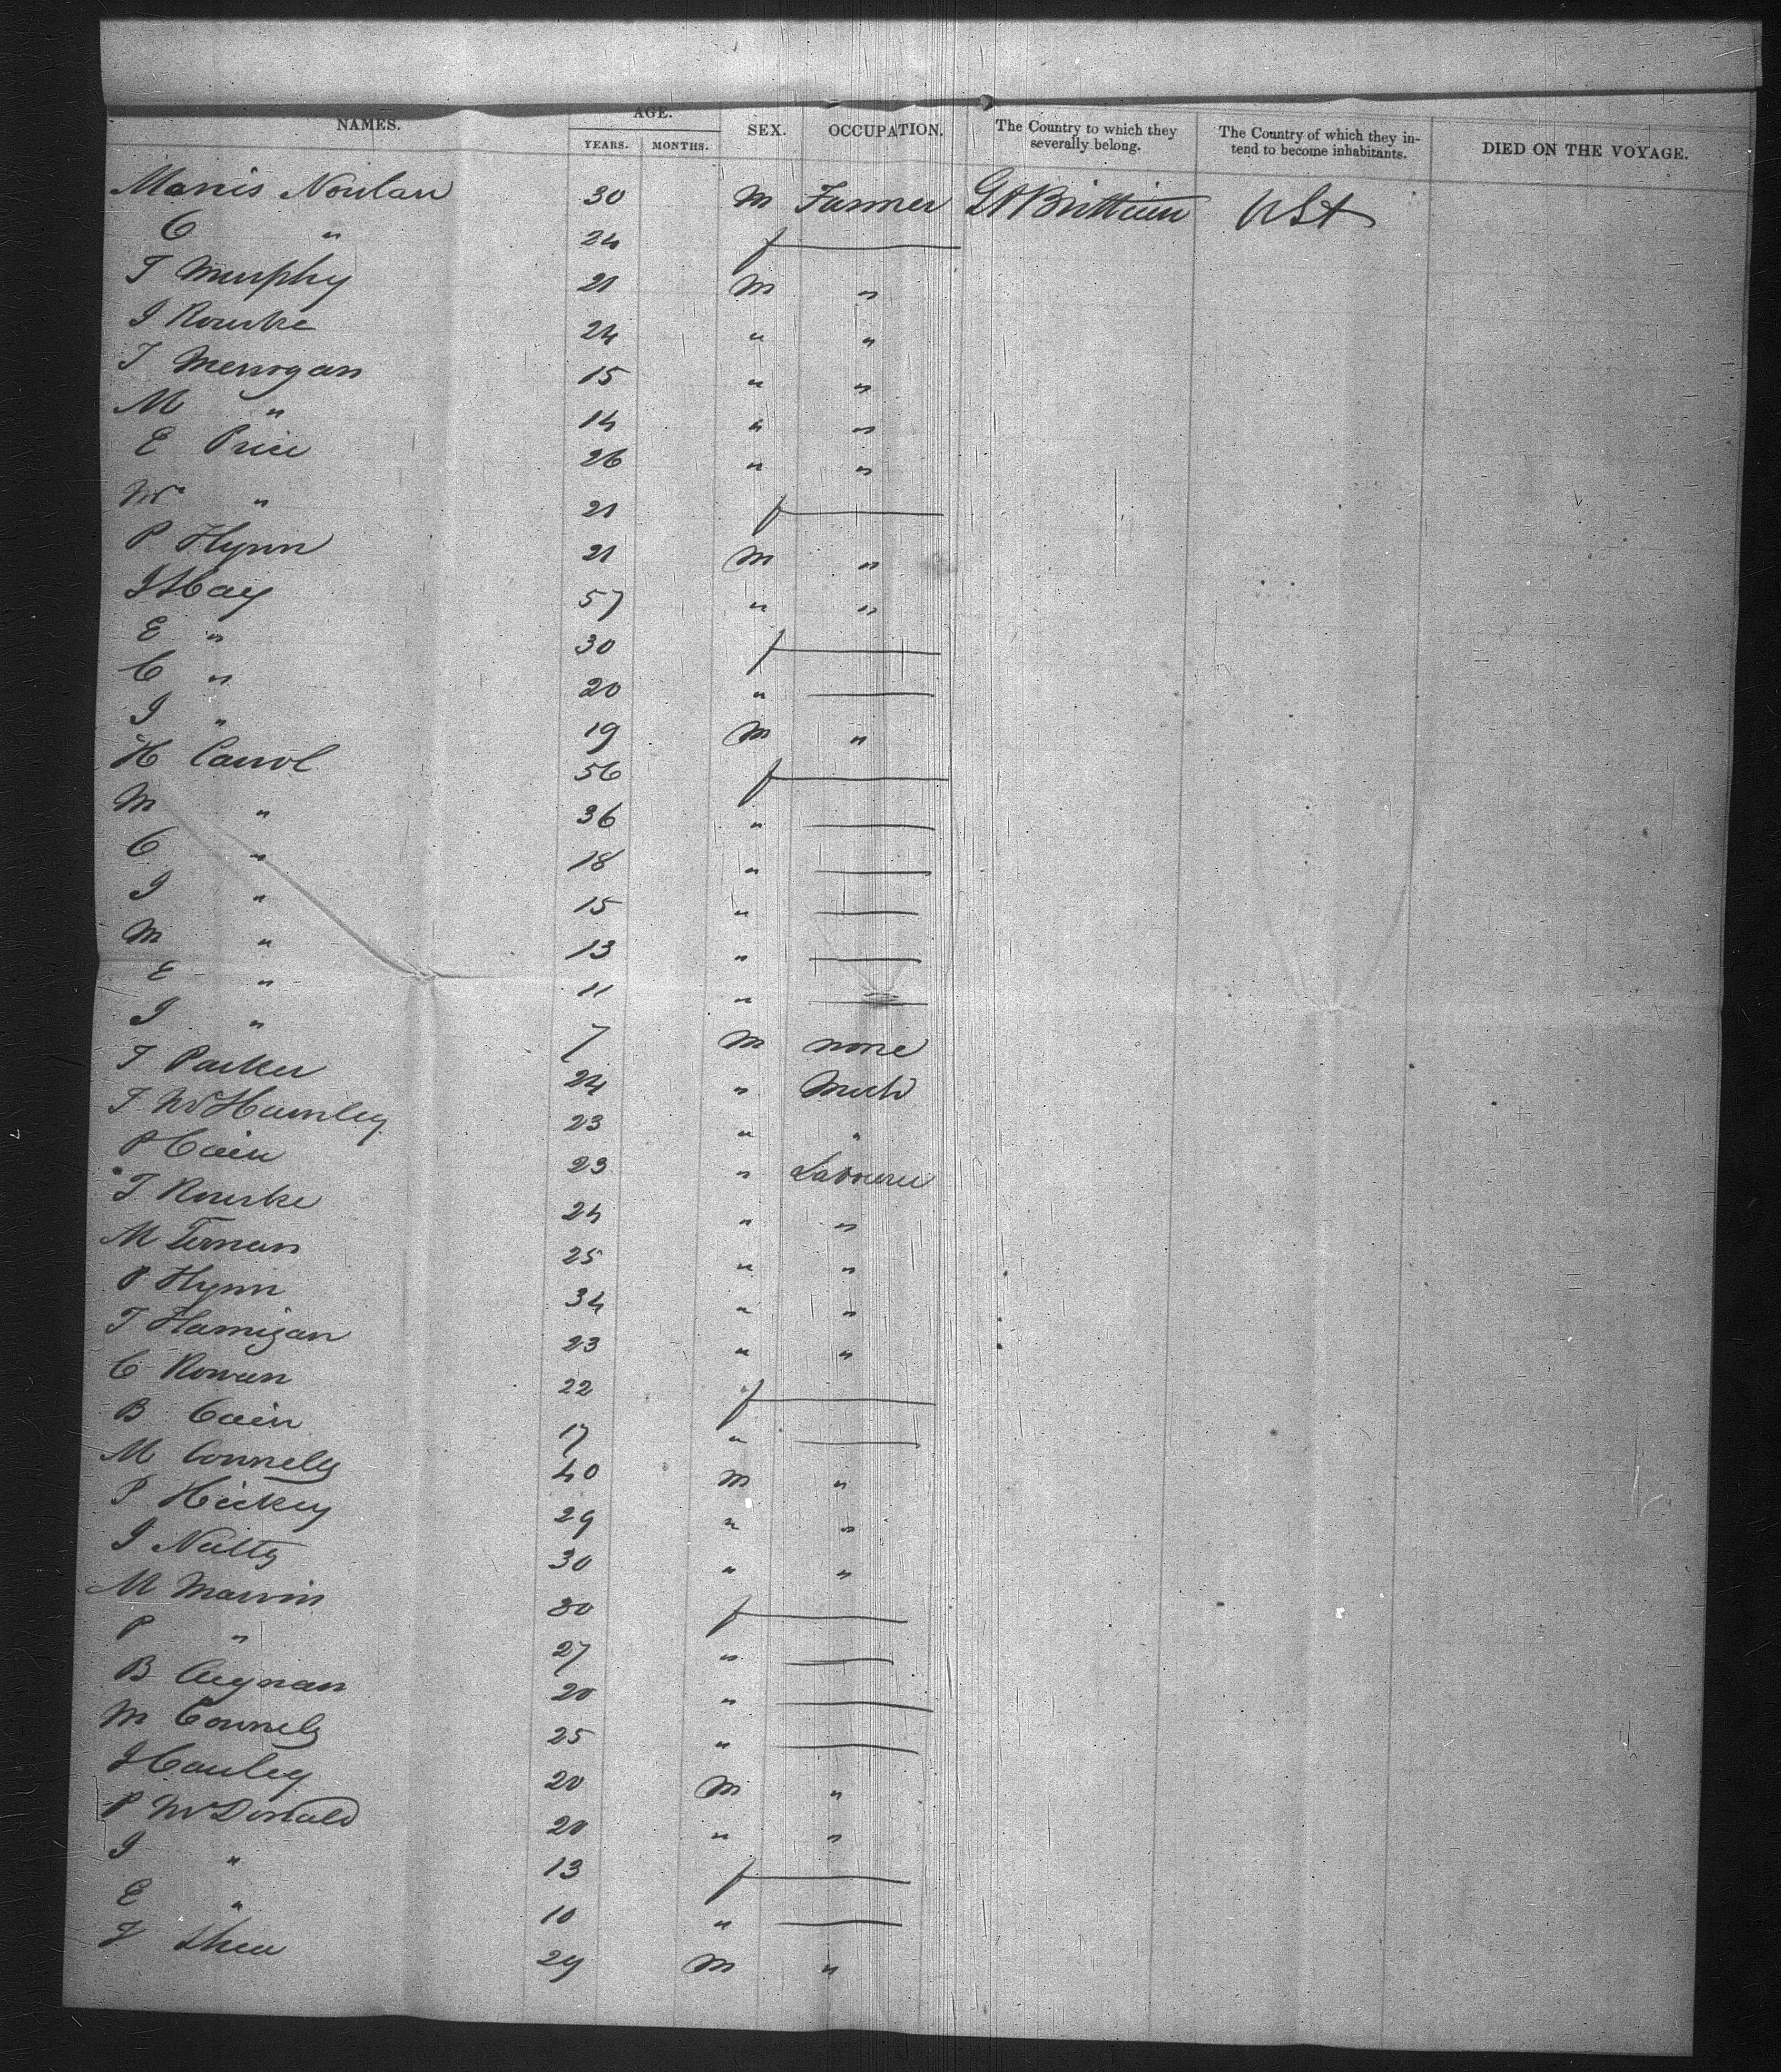 NAMES. AGE. SEX. OCCUPATION. The Country to which they severally belong. The Country of which they intend to become inhabitants. DIED ON THE VOYAGE.
YEARS. MONTHS.
Manis Noulan 30 M Farmer Gt Brittian USA
C " 24 f
T Murphy 21 M "
J Rourke 24 " "
T Merrogan 15 " "
M " 14 " "
E Price 26 " "
" 21 f
P Flynn 21 M "
J Hay 57 " "
E " 30 f
C " 20 "
J " 19 M "
H Carrol 56 f
M " 36 "
C " 18 "
J " 15 "
M " 13 "
E " 11 "
J " 7 M none
T Parker 24 " Mech
T 23 " "
P Cain 23 " Labourer
T Rourke 24 " "
M Ternan 25 " "
P Flynn 34 " "
T Flannigan 23 " "
C Rowan 22 f
B Cain 17 "
M Connely 40 M "
P Hickey 29 " "
J Natty 30 " "
M Marvin 30 f
P " 27 "
B 20 "
M Connely 25 "
J Hanley 20 M "
P McDonald 20 " "
J " 13 f
E " 10 "
J Shea 29 M "